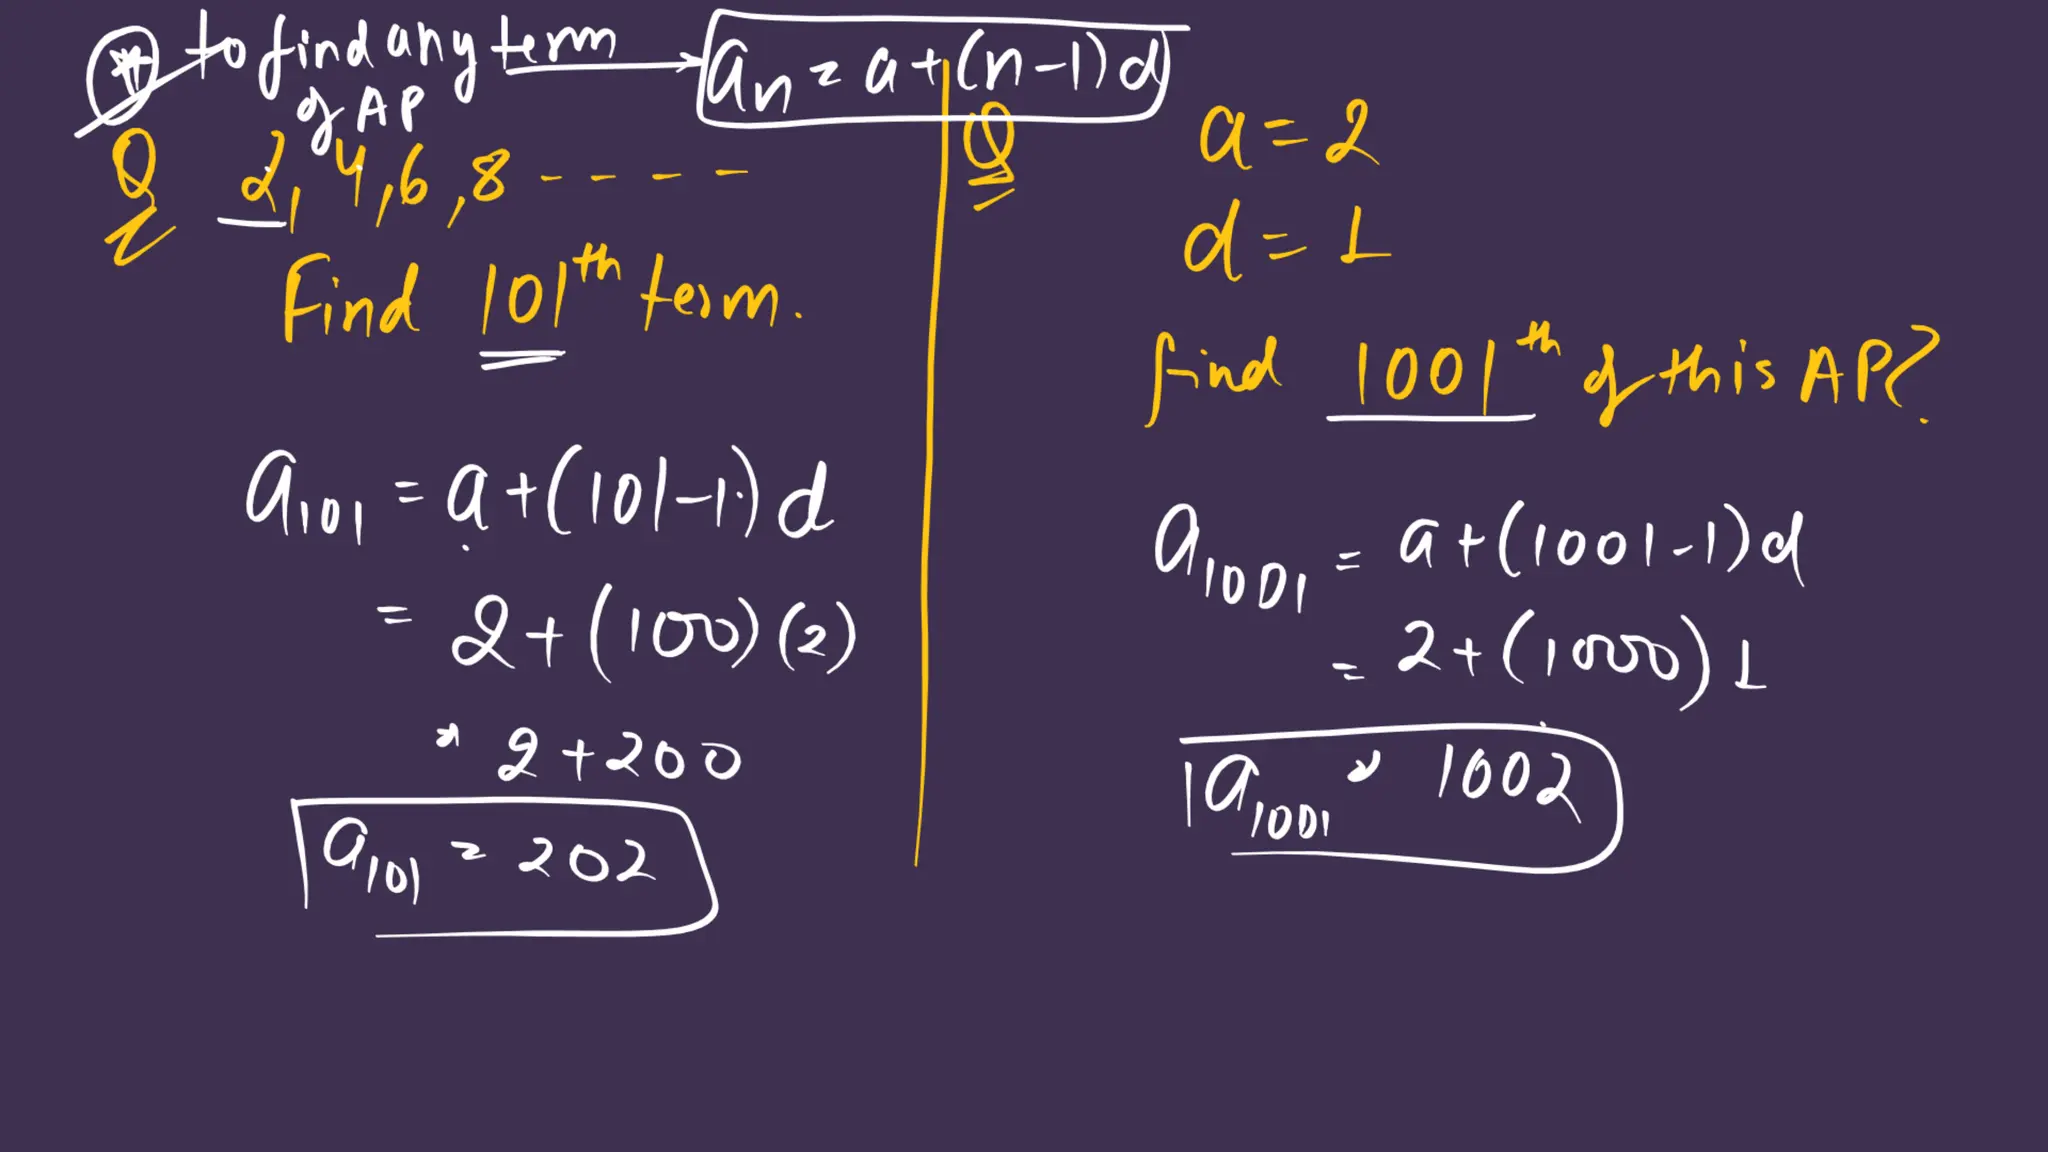 * to find any term → an = a+(n-1)d
of AP
Q 2, 4, 6, 8 ----
Find 101th term.
a101 = a+(101-1)d
= 2+(100)(2)
= 2+200
a101 = 202
Q a=2
d=1
find 1001th of this AP?
a1001 = a+(1001-1)d
= 2+(1000)1
a1001 = 1002